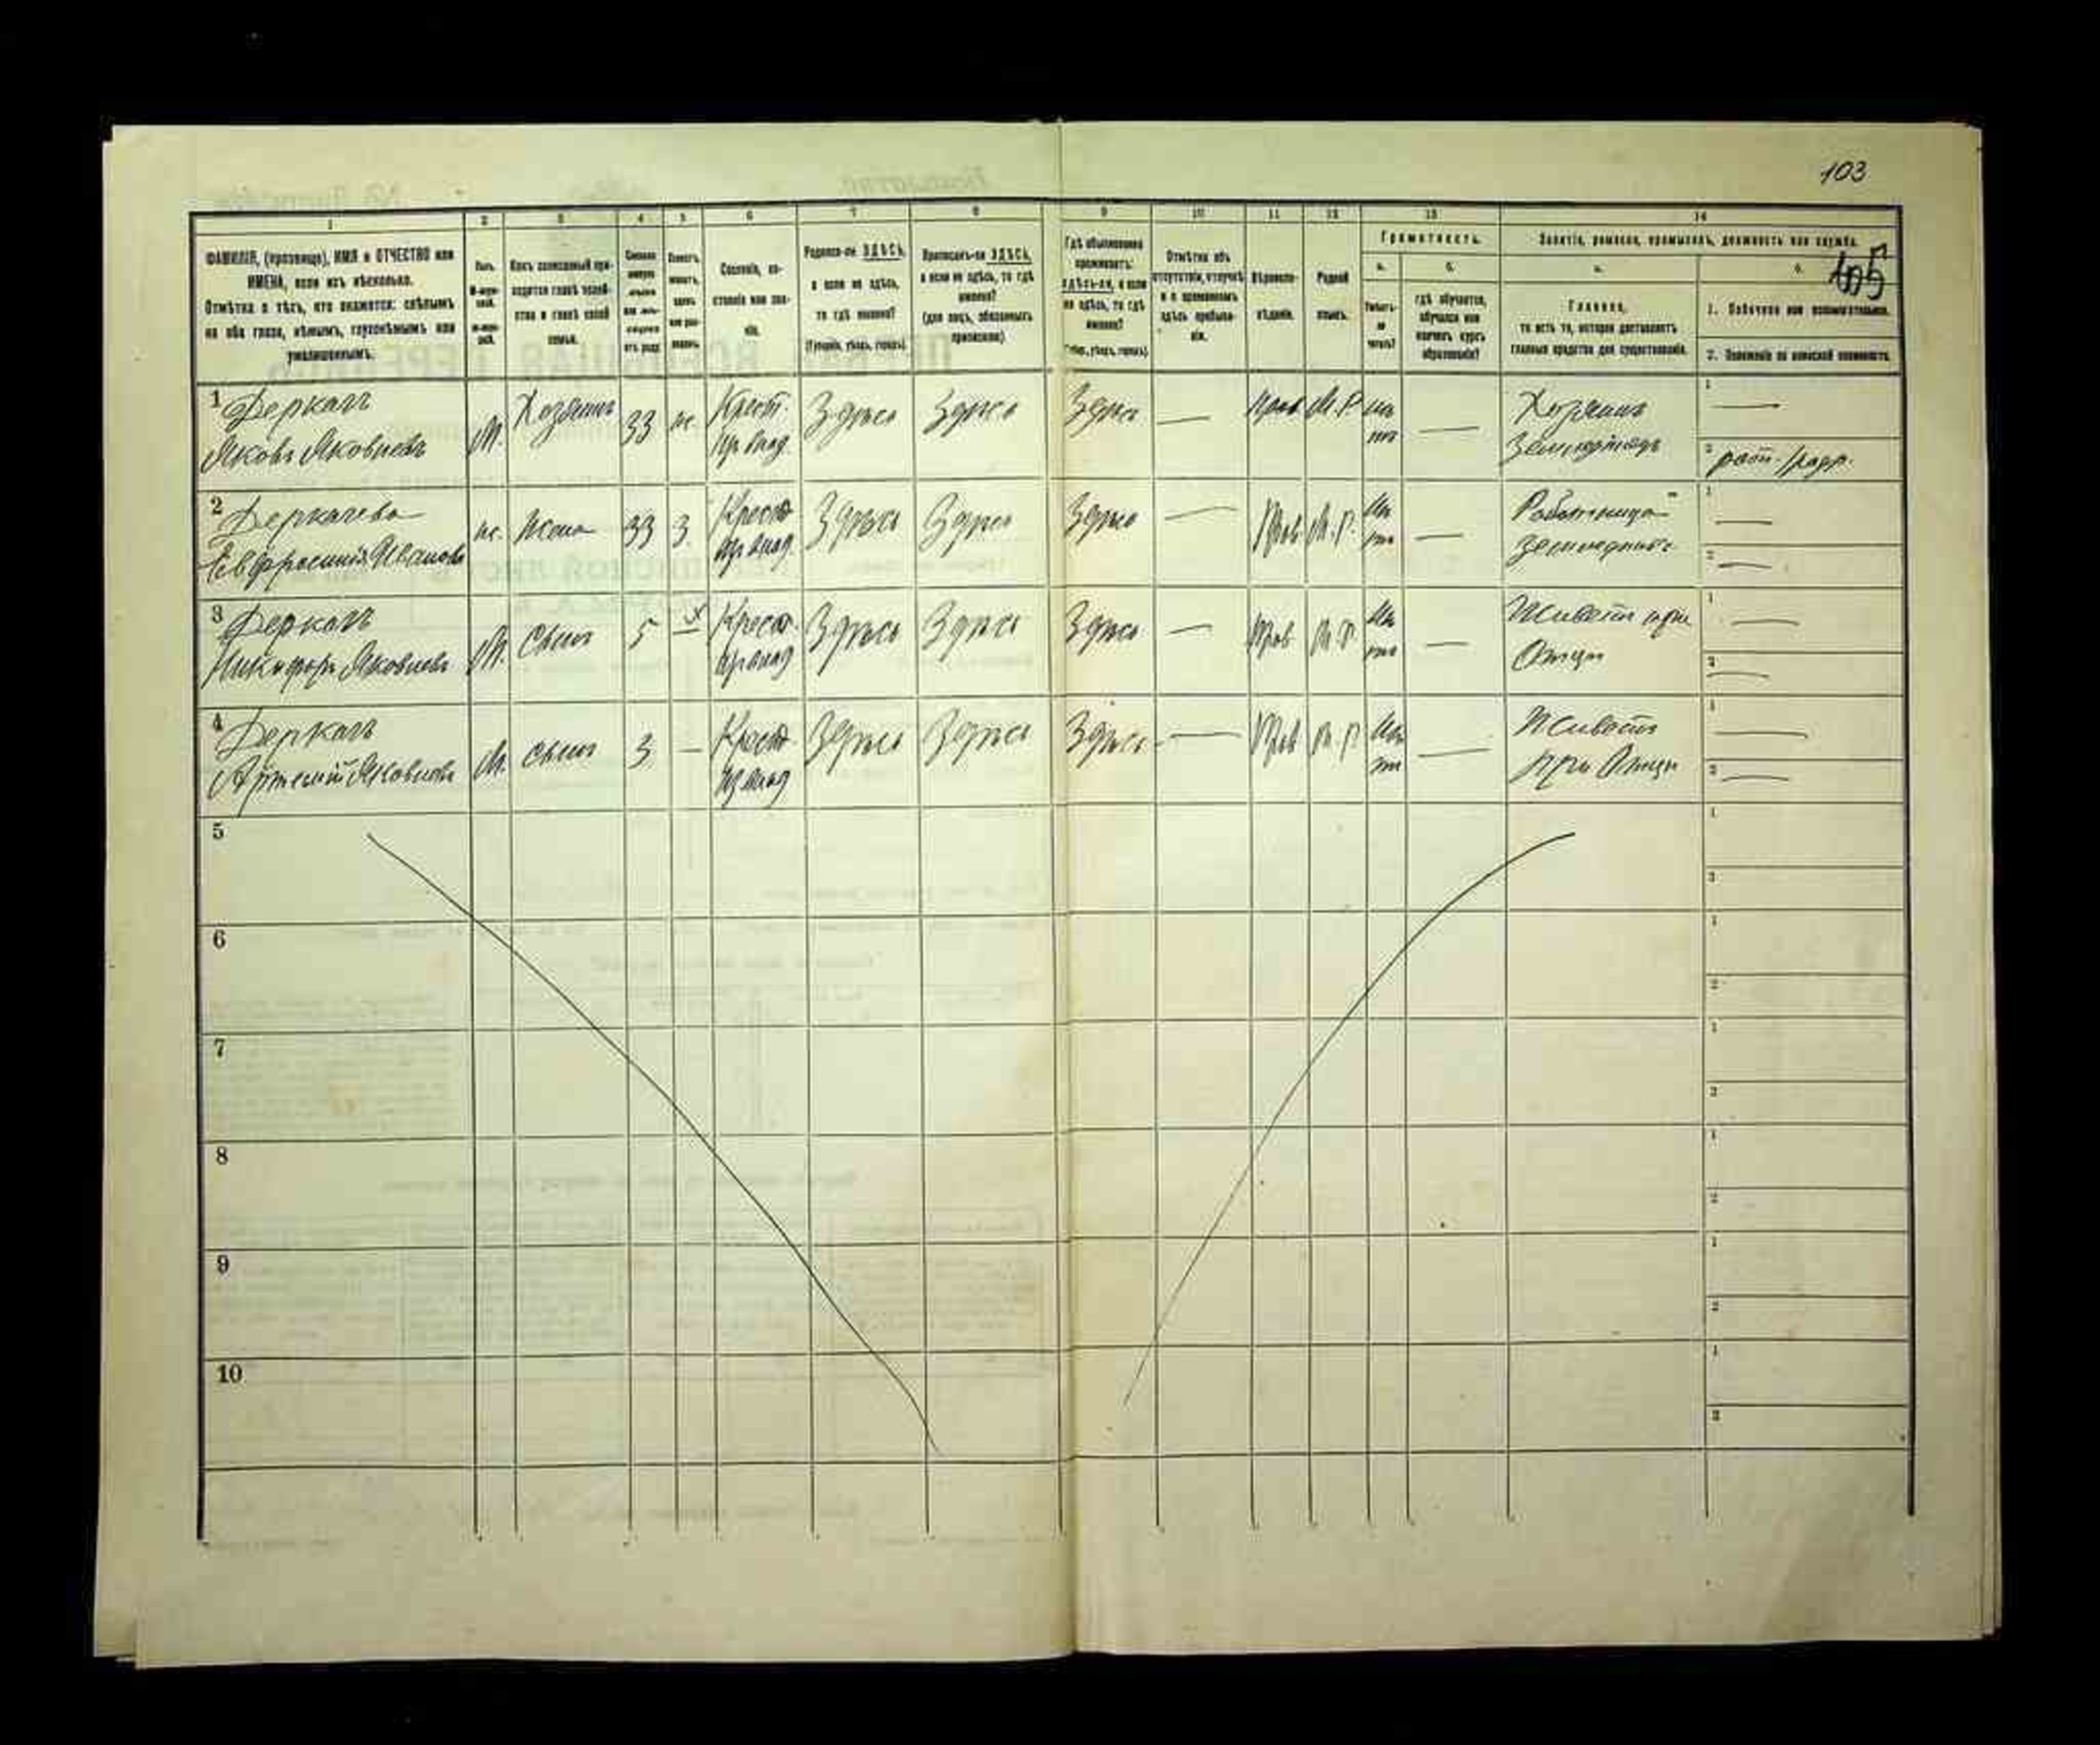 103
1 2 3 4 5 6 7 8 9 10 11 12 13 14
ФАМИЛІЯ, (прозвище), ИМЯ и ОТЧЕСТВО или
ИМЕНА, если ихъ нѣсколько.
Отмѣтка о тѣхъ, кто окажется: слѣпымъ
на оба глаза, нѣмымъ, глухонѣмымъ или
умалишеннымъ.
Полъ.
М-муж-
ской.
ж-жен-
ской.
Какъ записанный при-
ходится главѣ хозяй-
ства и главѣ своей
семьи.
Сколько
минуло
лѣтъ
или мѣ-
сяцевъ
отъ роду
Холостъ,
женатъ,
вдовъ
или раз-
веденъ.
Сословіе, со-
стояніе или зва-
ніе.
Родился-ли ЗДѢСЬ,
а если не здѣсь,
то гдѣ именно?
(Губернія, уѣздъ, городъ).
Приписанъ-ли ЗДѢСЬ,
а если не здѣсь, то гдѣ
именно?
(для лицъ, обязанныхъ
припискою).
Гдѣ обыкновенно
проживаетъ:
ЗДѢСЬ-ЛИ, а если
не здѣсь, то гдѣ
именно?
(Губер., уѣздъ, городъ).
Отмѣтка объ
отсутствіи, отлучкѣ
и о временномъ
здѣсь пребыва-
ніи.
Вѣроиспо-
вѣданіе.
Родной
языкъ.
Грамотность.
а.
Умѣетъ-
ли
читать?
б.
гдѣ обучается,
обучался или
кончилъ курсъ
образованія?
Занятіе, ремесло, промыселъ, должность или служба.
а.
Главное,
то есть то, которое доставляетъ
главныя средства для существованія.
б.
105
1. Побочное или вспомогательное.
2. Положеніе по воинской повинности.
1 Деркачъ
Яковъ Яковлевъ
М. Хозяинъ 33 ж. Крест. Здѣсь Здѣсь Здѣсь — Прав. М.Р. нѣ — Хозяинъ 1 —
тъ
2
2 Деркачева
Евфросинія Иванова
ж. Жена 33 З. Крест. Здѣсь Здѣсь Здѣсь — Прав. М.Р. Нѣ — Работница 1 —
тъ
2 —
3 Деркачъ
Никифоръ Яковлевъ
М. Сынъ 5 — Крест. Здѣсь Здѣсь Здѣсь — Прав. М.Р. Нѣ — Живетъ при 1 —
тъ Отцѣ
2 —
4 Деркачъ
Артемій Яковлевъ
М. Сынъ 3 — Крест. Здѣсь Здѣсь Здѣсь — Прав. М.Р. Нѣ — Живетъ 1 —
тъ при Отцѣ
2 —
5 1
2
6 1
2
7 1
2
8 1
2
9 1
2
10 1
2